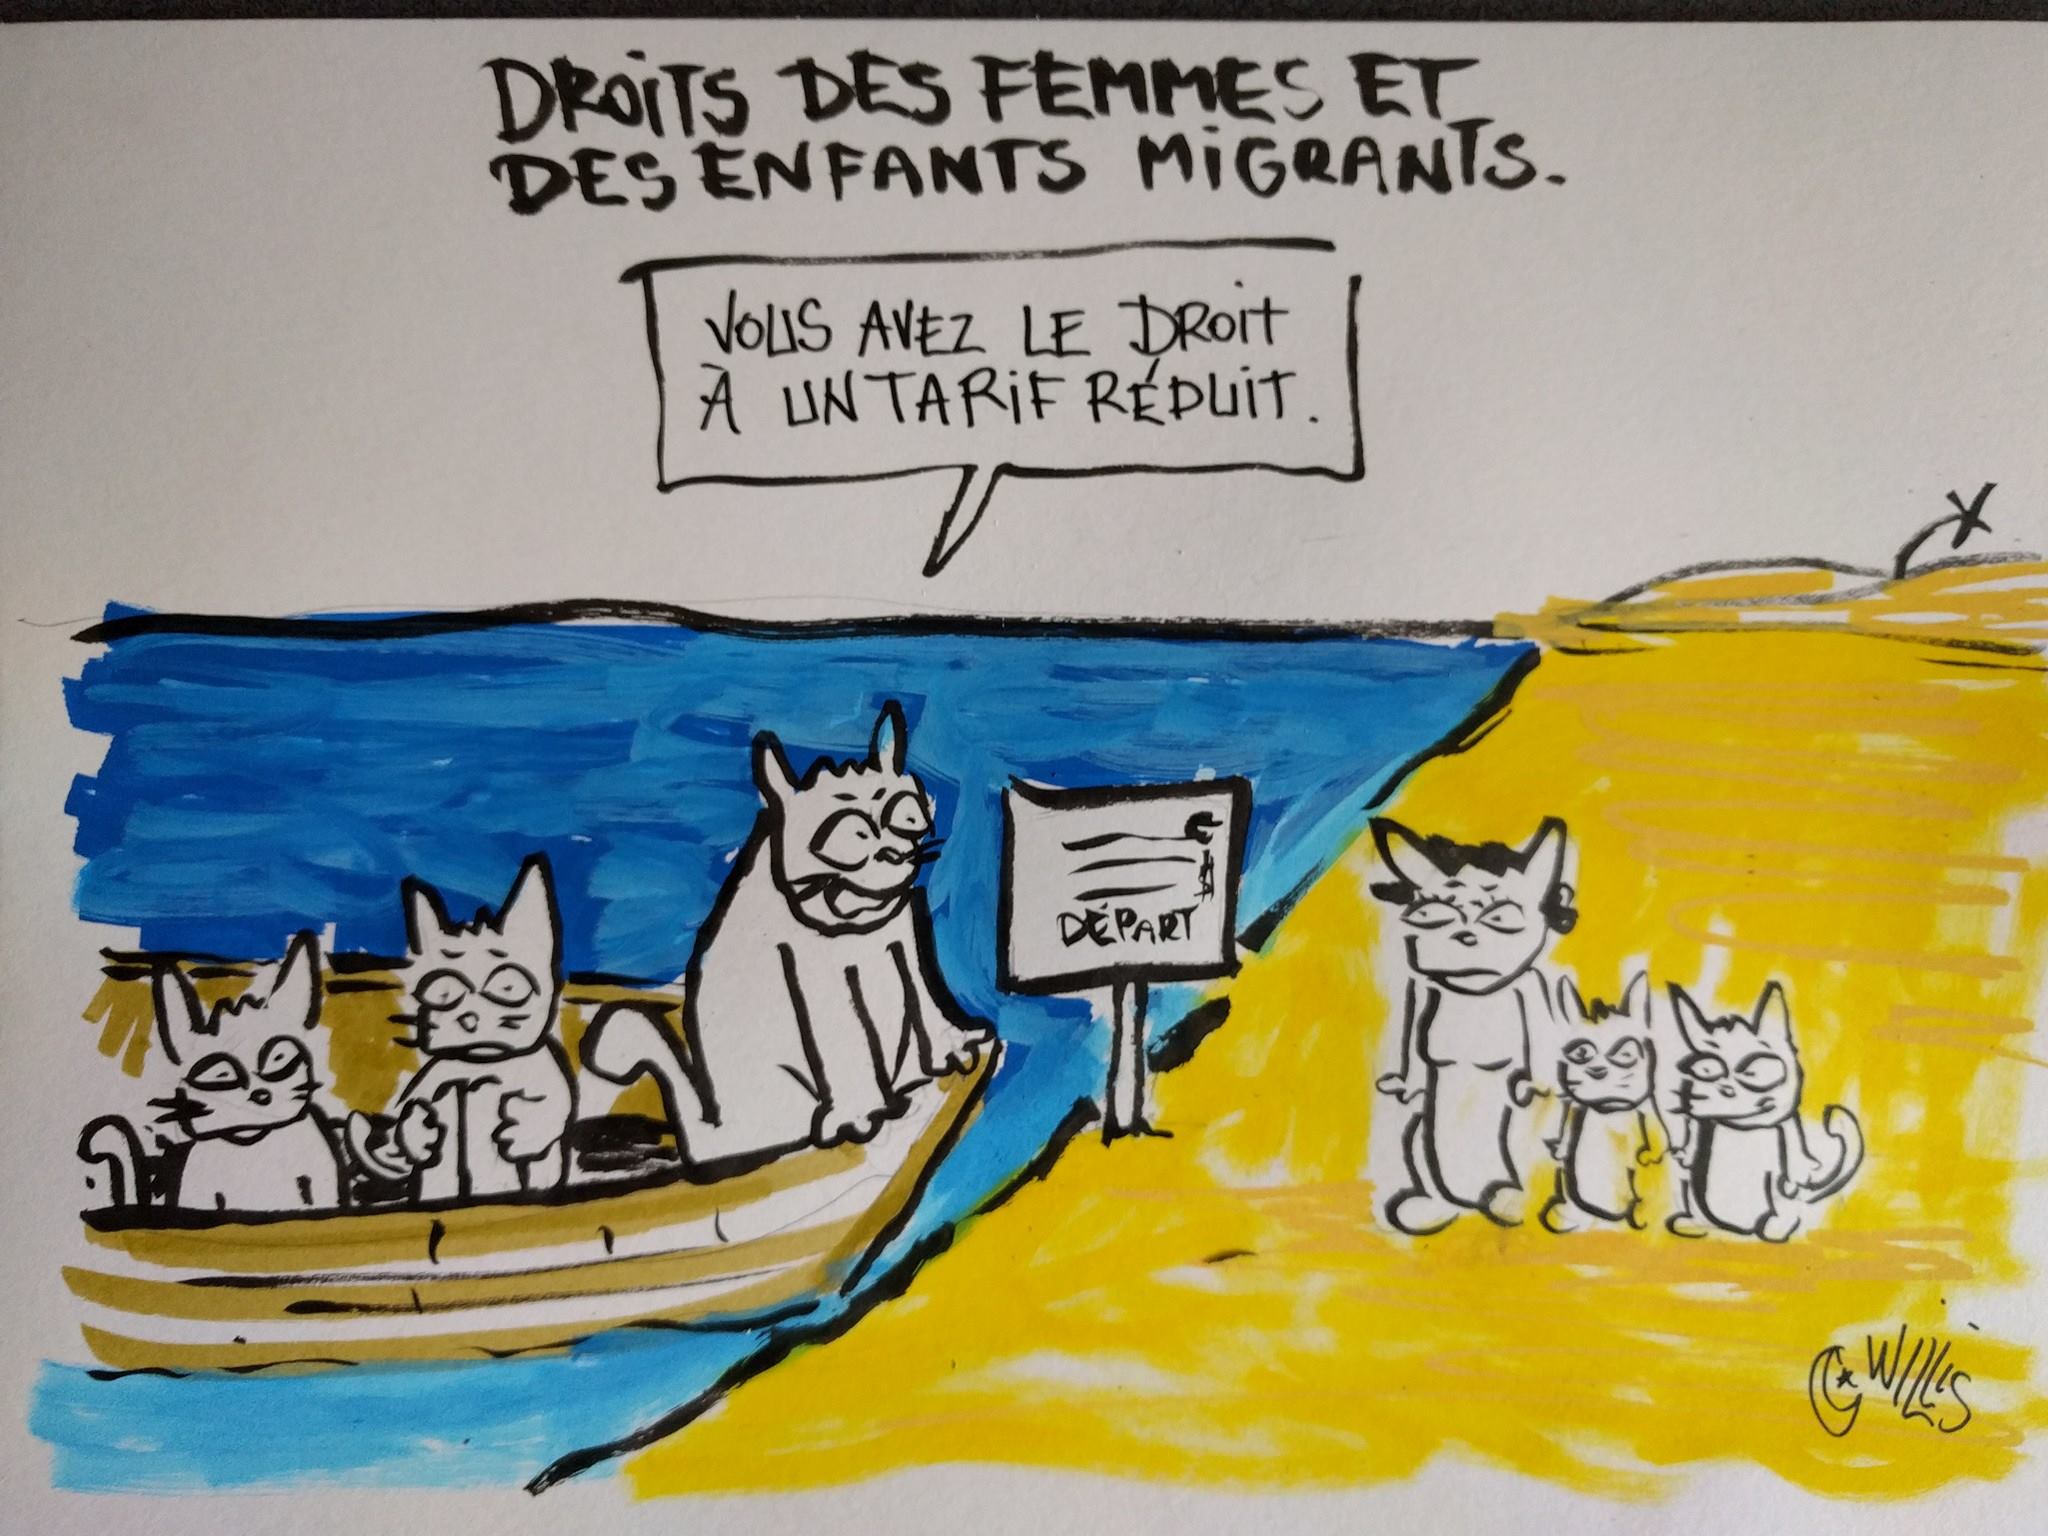 DROITS DES FEMMES ET
DES ENFANTS MIGRANTS.
VOUS AVEZ LE DROIT
À UN TARIF RÉDUIT.
€
$
DÉPART
WILLIS